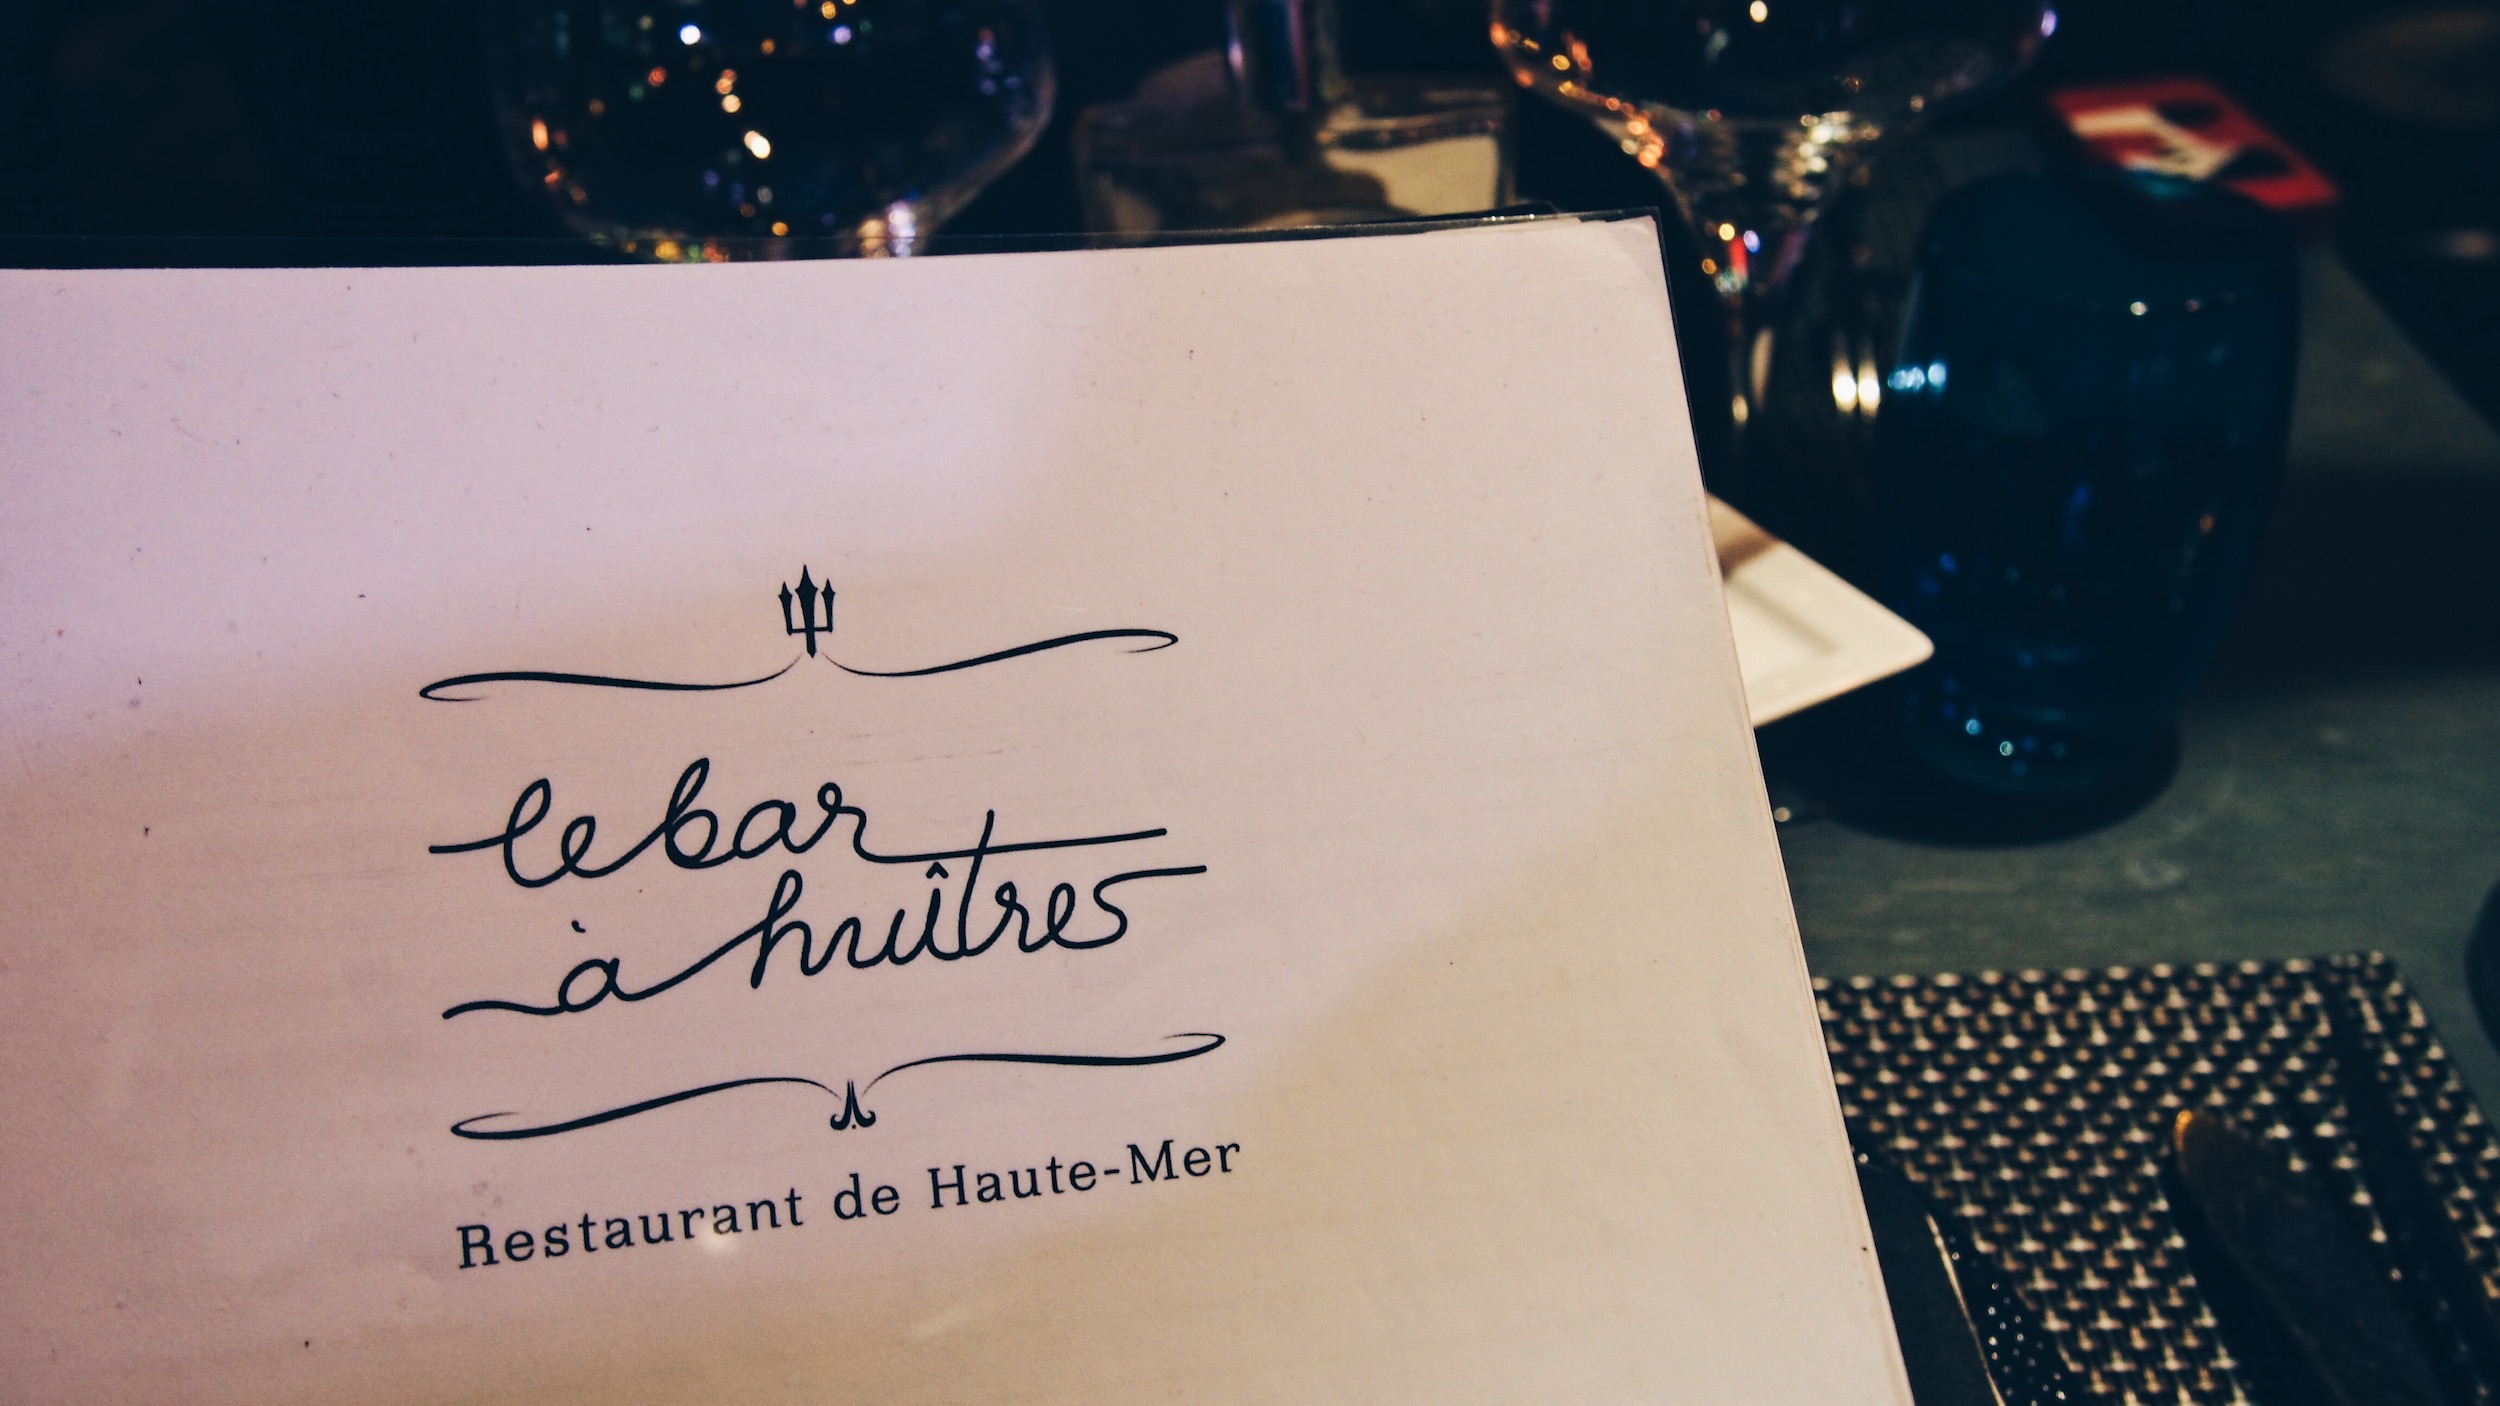 le bar
à huîtres
Restaurant de Haute-Mer